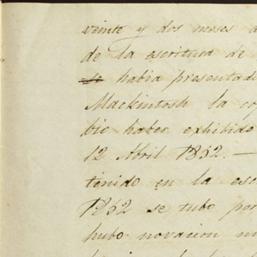 veinte y dos meses
de la escritura de
habia presentado
Mackintosh la
bio haber exhibido
12 Abril 1852. —
tenido en la
1852 se tubo por
hubo novacion